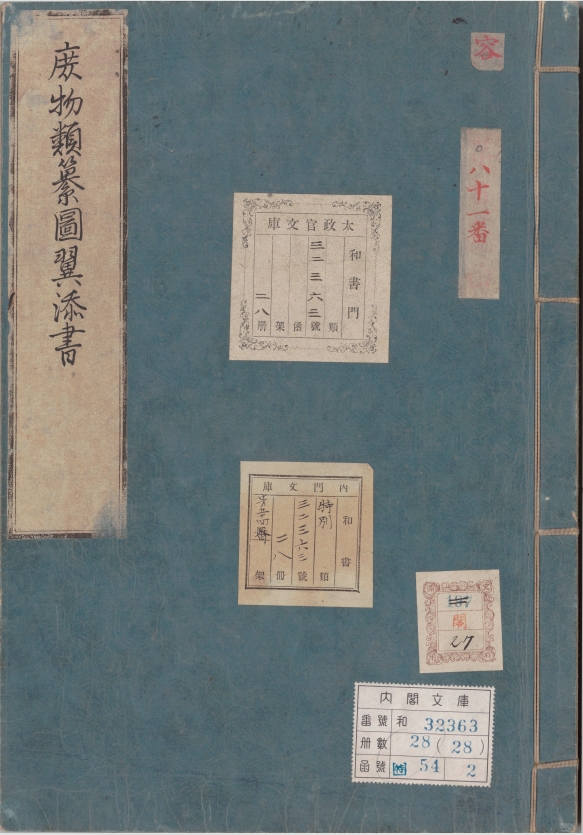 庶物類纂圖翼添書
容
八十一番
太政官文庫
和書門
三二三六三
類號凾架冊
二八
內閣文庫
和書
特別
類
三二三六三
號
二八
冊
架
閣
27
內閣文庫
番號 和 32363
冊數 28(28)
函號 特 54 2